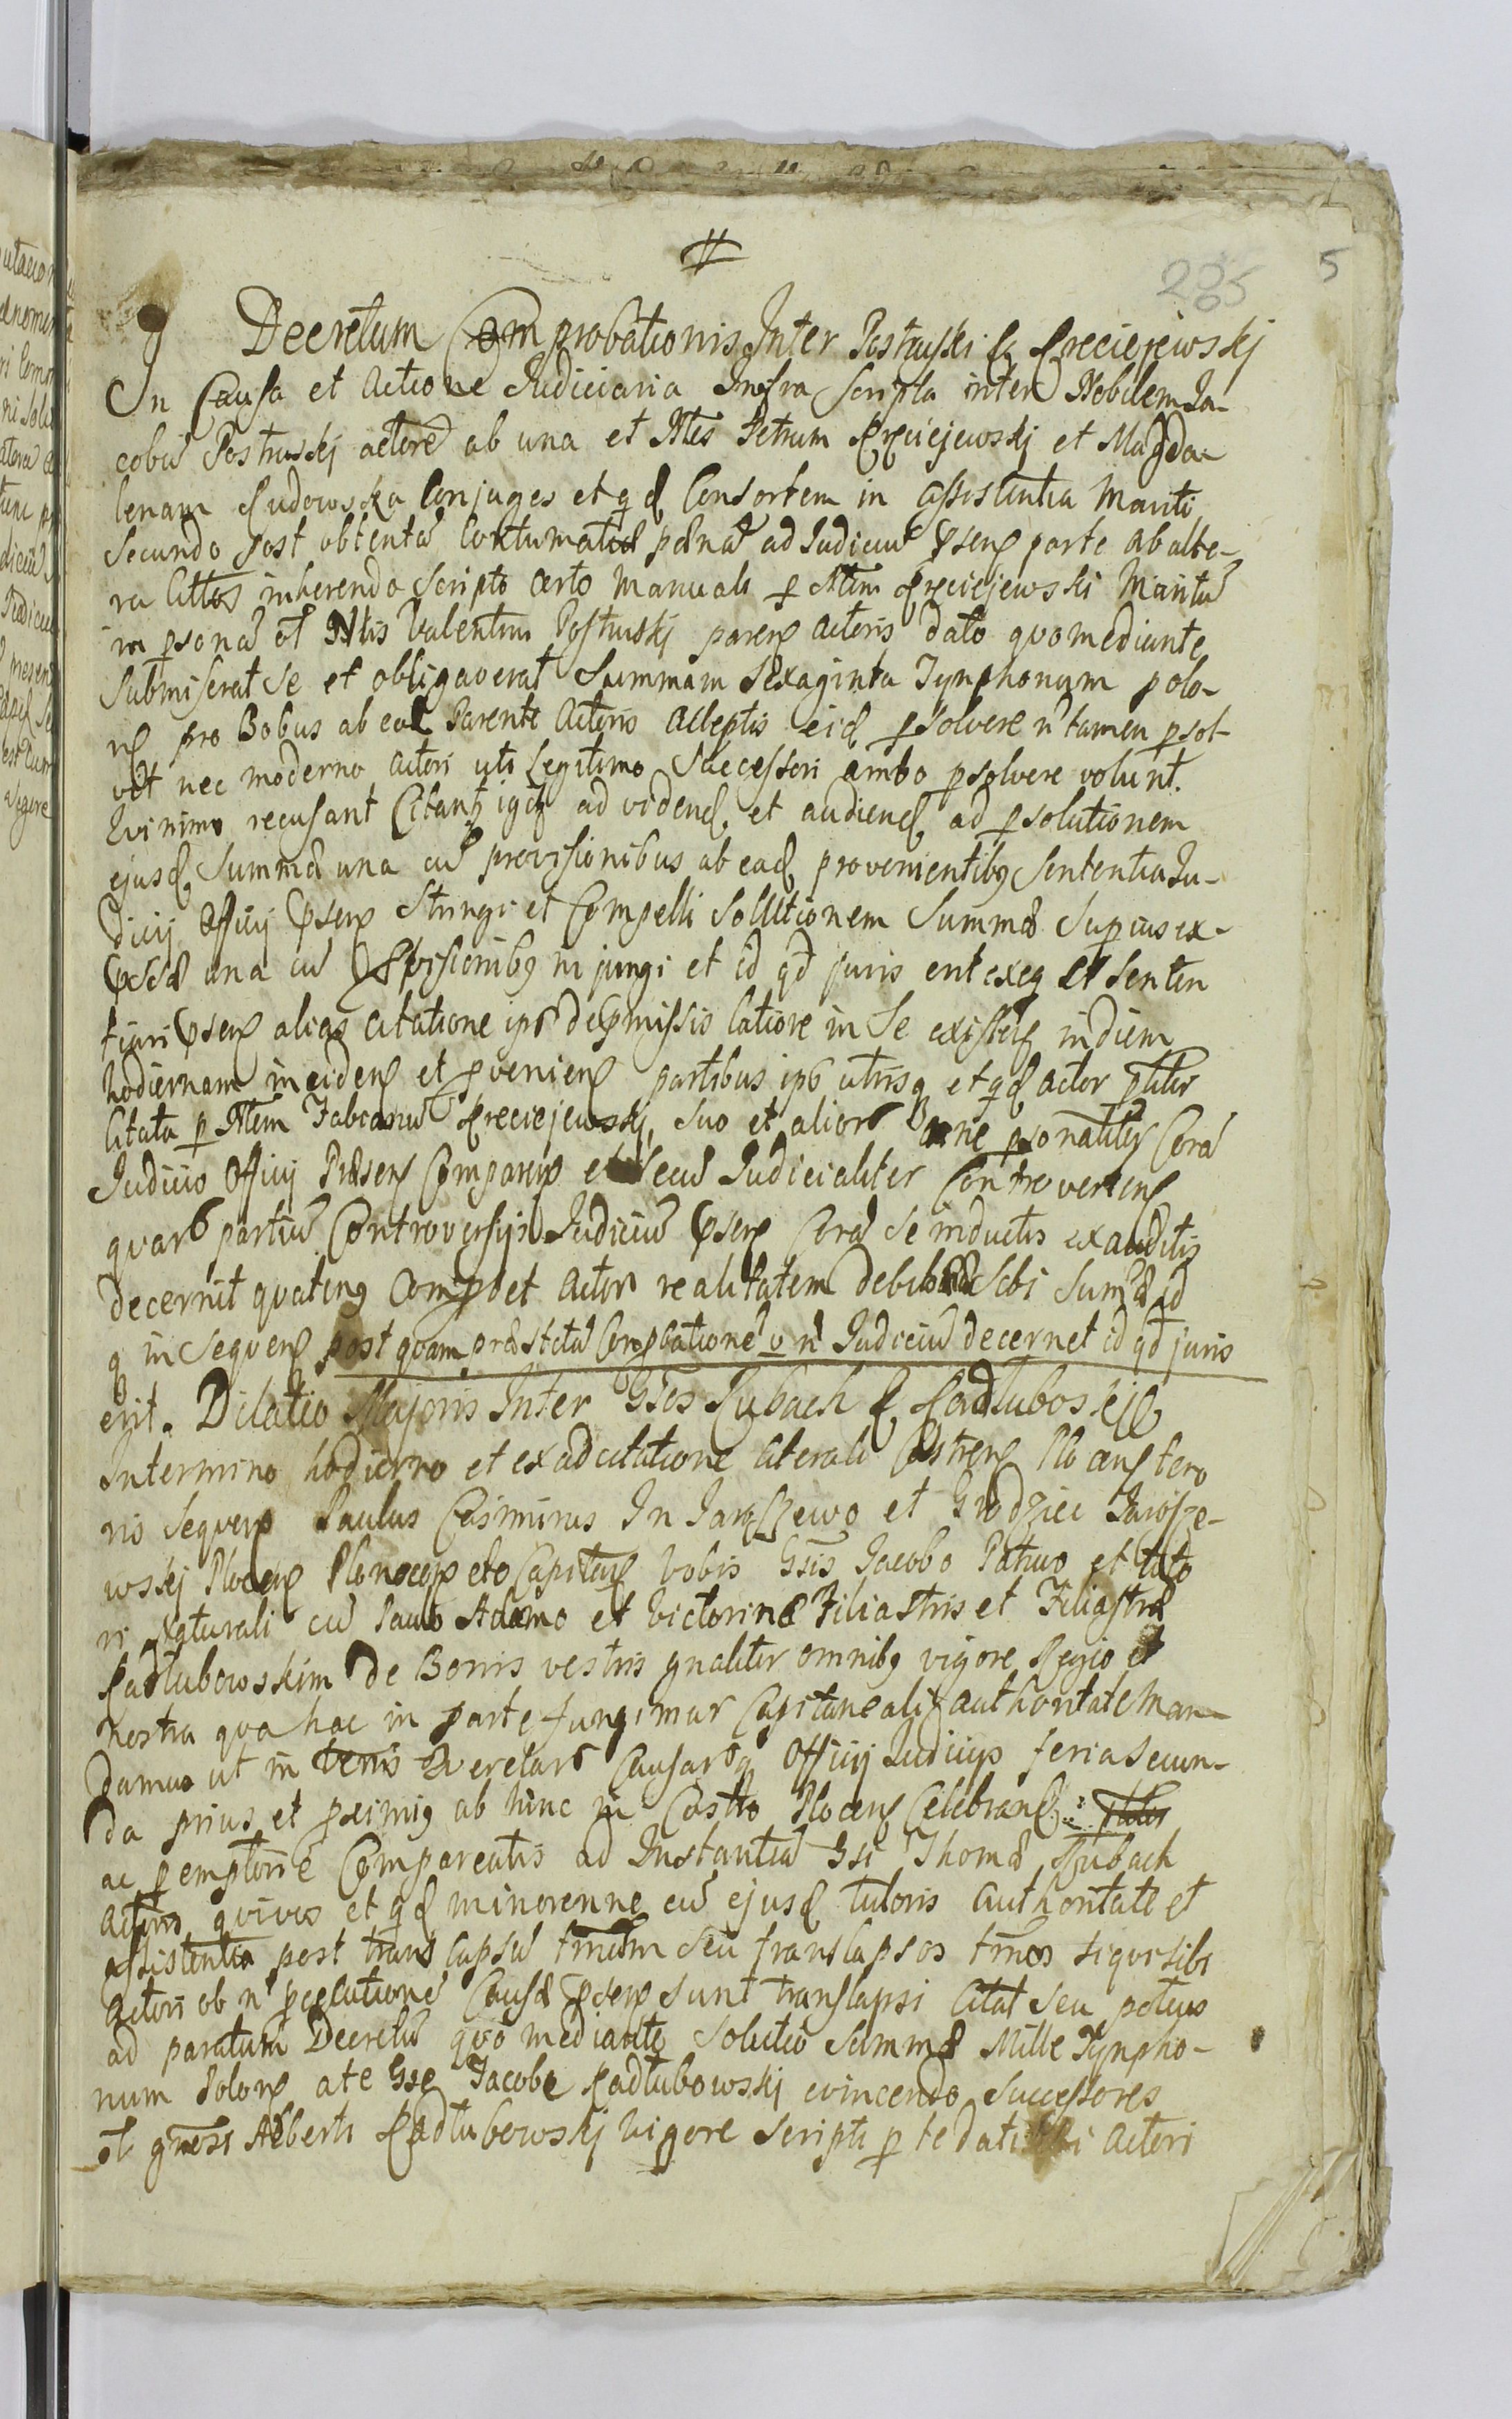 5
Decretum Comprobationis Inter Postruski & Kreciejewskj
In Causa et Actione Judiciaria Infra scripta inter Nobilem Ja-
cobū Postruskj actorē ab una et Nles Petrum Kreciejewskj et Magda-
lenam Rudowska Conjuges et qd Consortem in assistentia Mariti
Secundo post obtentā Contumatiæ pænā ad Judiciū psens parte ab alte-
ra Cittos inherendo scripto certo manuali p Nlem Kreciejewski Maritū
in psonā ol Nlis Valentini Postruskj parens Actoris dato quo mediante
submiserat se et obligaverat Summam sexaginta Tynphonum polo-
ns pro Bobus ab eod Parente Actoris acceptis eid psolvere n tamen psol-
vit nec moderno Actori uti Legitimo Successori ambo psolvere volunt.
Qvinimo recusant Citantq igitq ad videnđ et audienđ ad psolutionem
ejusđ Summæ una cū provisionibus ab eađ provenientibq Sententia Ju-
dicij Officij psens Stringi et Compelli Solutionem Summæ Superius ex-
pssæ una cū pvisionibq injungi et id qd juris erit exeq et senten
tiari psens alias citatione ipso de pmissis latiore in se existens in diem
hodiernam incidens et pveniens partibus ipis utrisq et qd actor pliter
Citata p Nlem Fabianū Kreciejewskj, suo et aliorū nne psonaliter Corā
Judicio Officij Præsens Comparens et secū Judicialiter Controvertens
quarū partiū Controversijs Judiciū psens Corā se inductis exauditis
decernit quatinq Comprobet Actor realitatem debitæ sibi Summæ id
q in sequens post quam præstitā Comprobatione v n Judiciū decernet id qd juris
erit. Dilatio Majoris Inter Gsos Kubach & Kadłubowskj
In termino hodierno et ex ad citatione literali Castrens Plocens teno
ris sequens Paulus Casimirus In Jaroszewo et Grodziec Jarosze-
wskj Plocens Plonocens etc Capitans Vobis Gsis Jacobo Patruo et tuto
ri naturali cū Paulo Adamo et Victorina Filiastris et Filiastra
Kadłubowskim de Bonis vestris gnaliter omnibq vigore Regio et
nostra qva hac in parte fungimur Capitaneali authoritate Man-
damus ut in tenis Qverelarū Causarūq Officij Judicijs feria secun-
da prius et pximiq ab hinc in Castro Plocens Celebrand
ac pemptorie Compareatis ad Instantiā Gsi Thomæ Kubach
Actoris qvivis et qđ minorenne cū ejusđ tutoris authoritate et
assistentia post translapsū tminum seu translapsos tmnos siqvi sibi
Actori ob n psecutionē Causæ psens sunt translapsi Citat seu potius
ad paratum Decretū qvo mediante solutio Summæ Mille Tynpho-
num Polons a te Gse Jacobe Kadłubowskj evincendo successores
ol gnosi Alberti Kadłubowskj Vigore Scripti p te dati sibi Actori